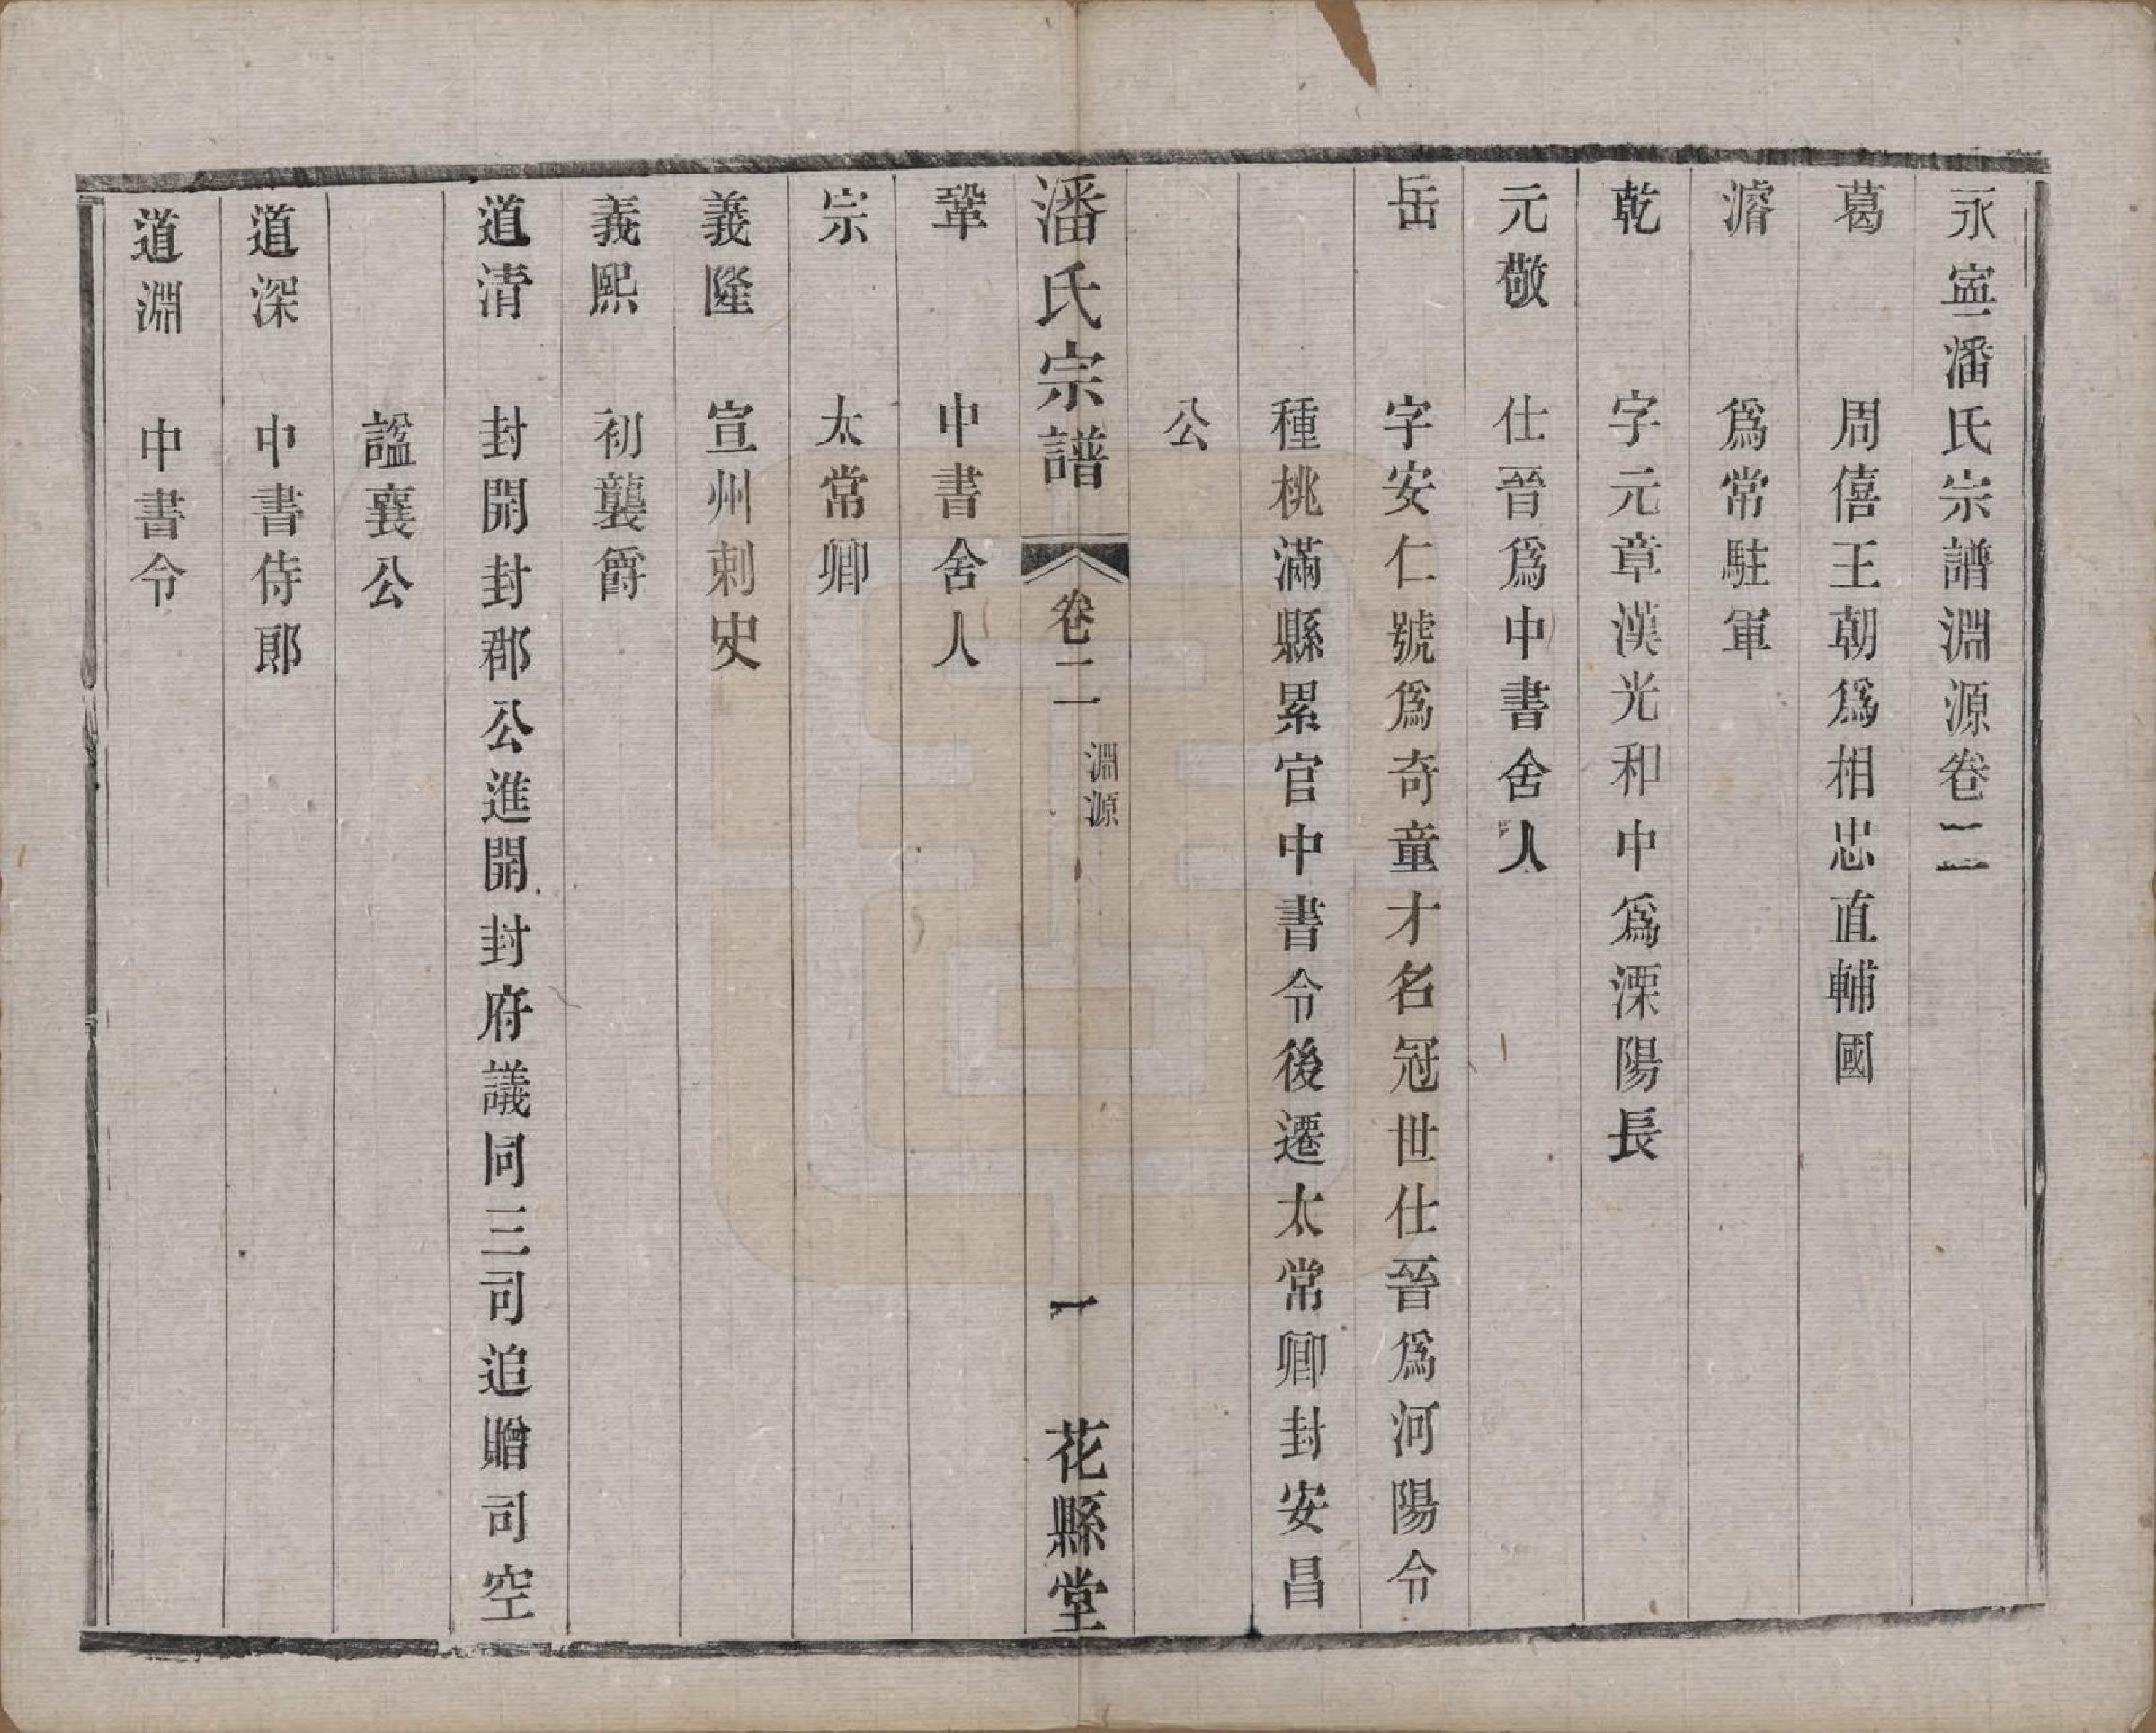 永寍潘氏宗譜淵源卷二
葛　周僖王朝爲相忠直輔國
濬　爲常駐軍
乾　字元章漢光和中爲溧陽長
元敬　仕晉爲中書舍人
岳　字安仁號爲奇童才名冠世仕晉爲河陽令
種桃滿縣累官中書令後遷太常卿封安昌
公
潘氏宗譜　卷二　淵源　一　花縣堂
鞏　中書舍人
宗　太常卿
義隆　宣州刺史
義熙　初襲爵
道清　封開封郡公進開封府議同三司追贈司空
諡襄公
道深　中書侍郎
道淵　中書令